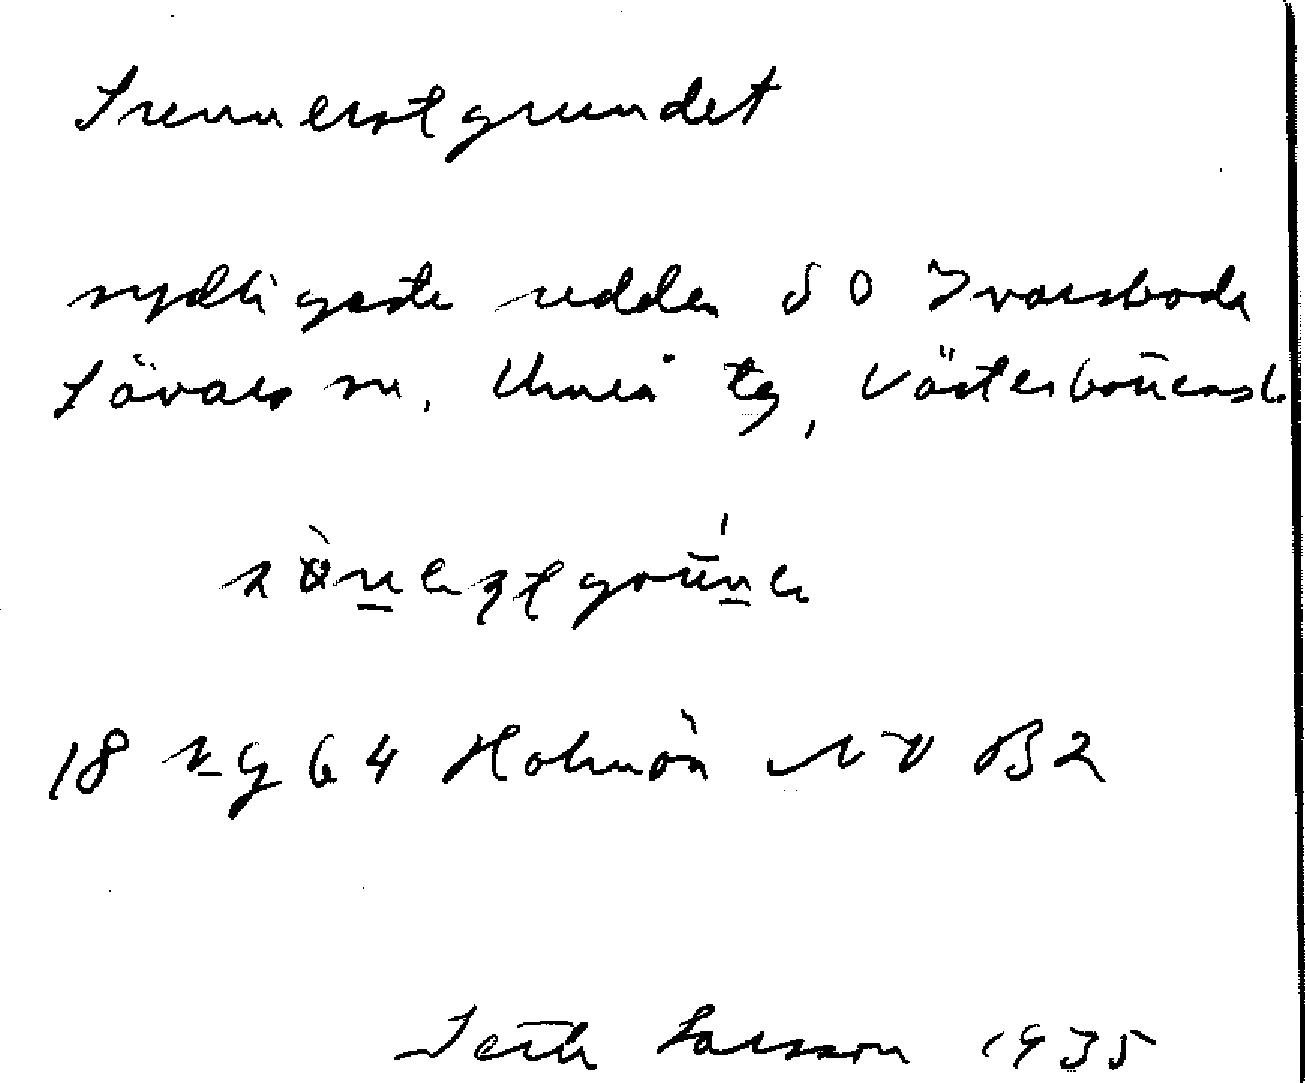 Sunnerstgrundet
sydligaste udden SO Ivarsboda
Sävars sn, Umeå tg, Västerbottens l.
18 64 Holmön NV B2
Seth Larsson 1935